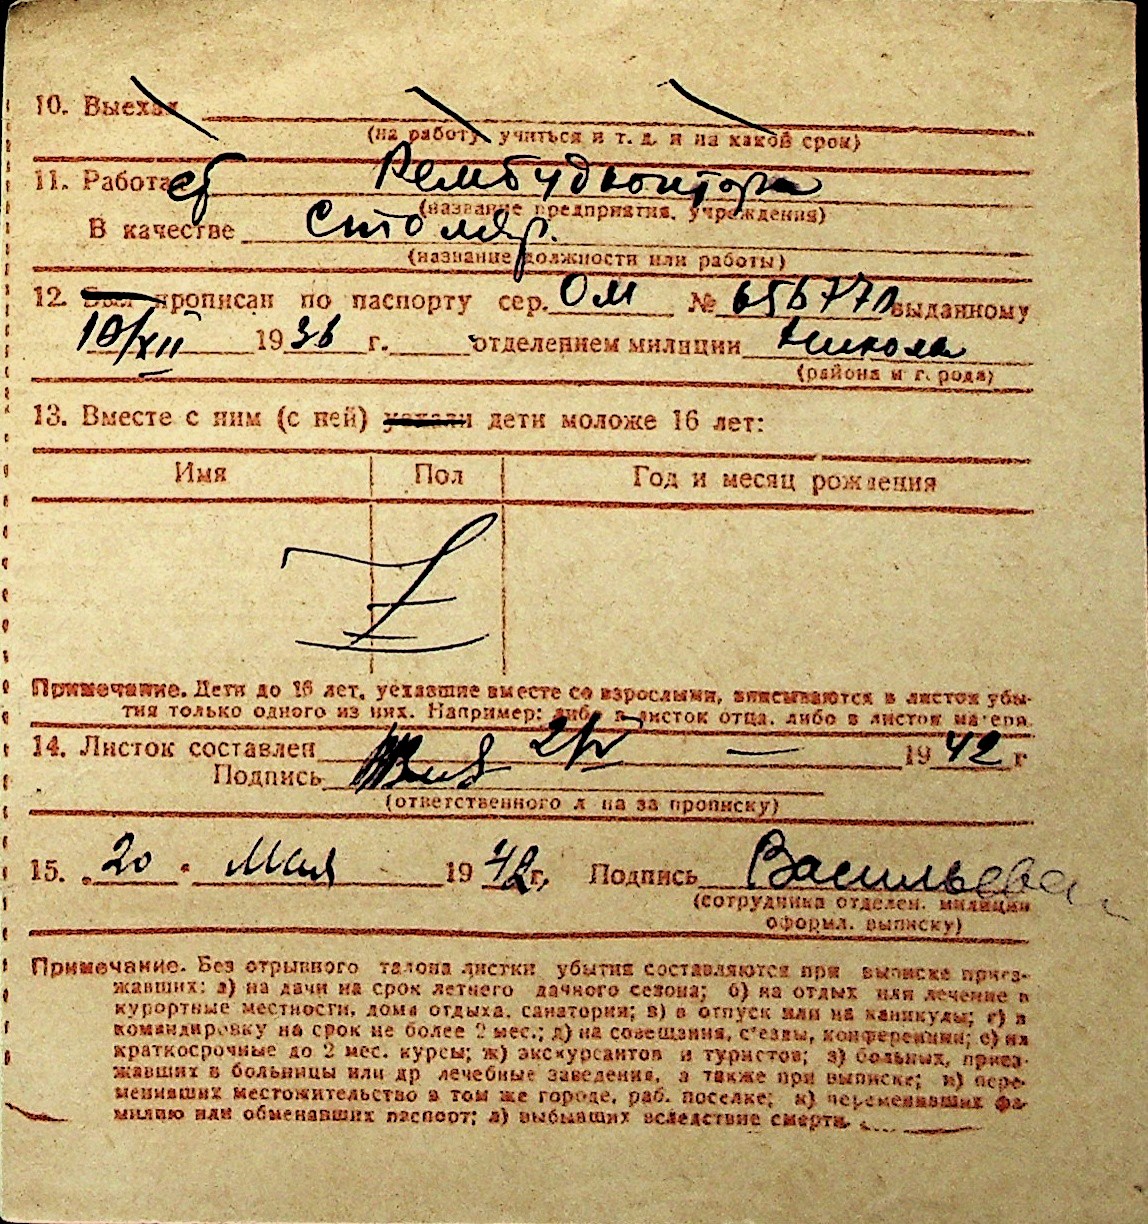 10. Выехал
(на работу, учиться и т. д. и на какой срок)
11. Работает Рембудконтора
(название предприятия, учреждения)
В качестве столяр.
(название должности или работы)
12. Был прописан по паспорту сер. ОМ № 656771 выданному
10/XII 1936 г. отделением милиции Никола
(района и города)
13. Вместе с ним (с ней) уехали дети моложе 16 лет:
Имя Пол Год и месяц рождения
Z
Примечание. Дети до 16 лет, уехавшие вместе со взрослыми, вписываются в листок убы-
тия только одного из них. Например: либо в листок отца, либо в листок матери.
14. Листок составлен 2/V — 1942 г
Подпись
(ответственного лица за прописку)
15. „20" Мая 1942 г. Подпись Васильева
(сотрудника отделен. милиции
оформл. выписку)
Примечание. Без отрывного талона листки убытия составляются при выписке приез-
жавших: а) на дачи на срок летнего дачного сезона; б) на отдых или лечение в
курортные местности, дома отдыха, санатории; в) в отпуск или на каникулы; г) в
командировку на срок не более 2 мес.; д) на совещания, с'езды, конференции; е) на
краткосрочные до 2 мес. курсы; ж) экскурсантов и туристов; з) больных, приез-
жавших в больницы или др лечебные заведения, а также при выписке; и) пере-
менивших местожительство в том же городе, раб. поселке; к) переменивших фа-
милию или обменавших паспорт; л) выбывших вследствие смерти.